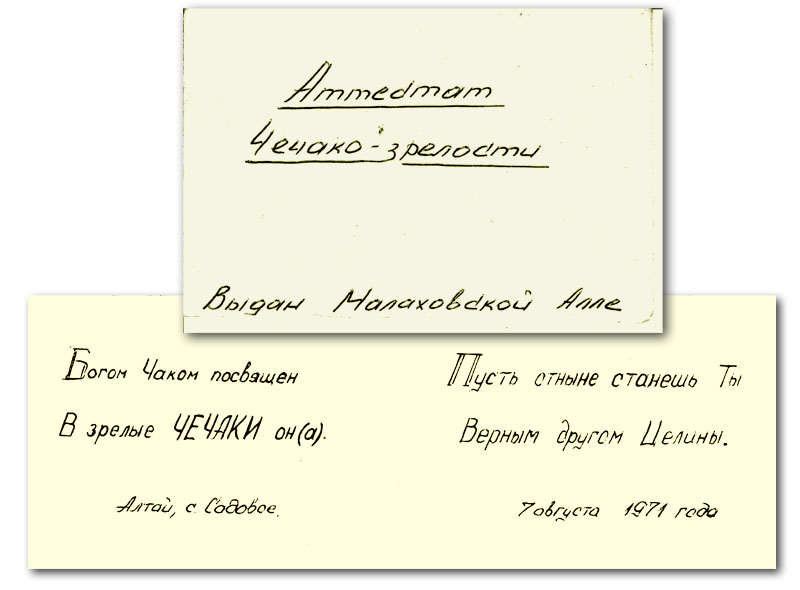 Аттестат
Чечако-зрелости
Выдан Малаховской Алле
Богом Чаком посвящен
В зрелые ЧЕЧАКИ он(а).
Алтай, с. Садовое.
Пусть отныне станешь Ты
Верным другом Целины.
7 августа 1971 года